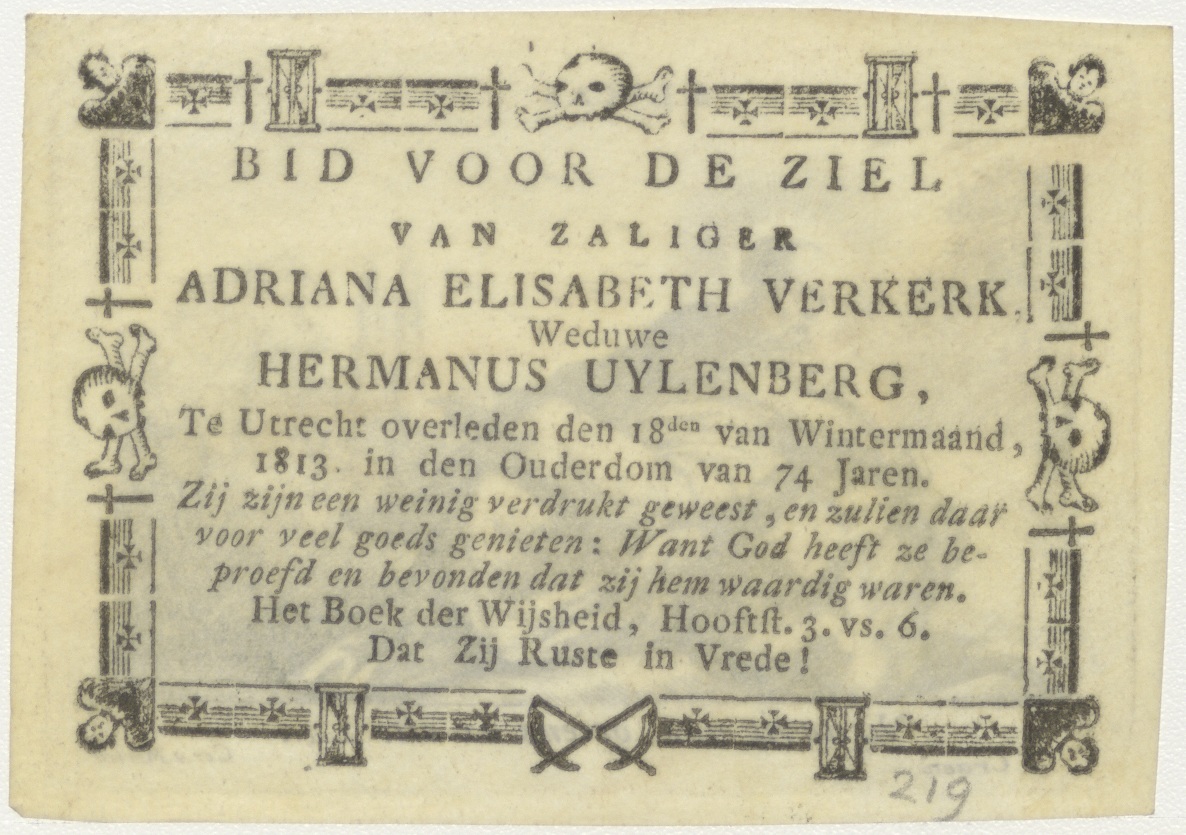 BID VOOR DE ZIEL
VAN ZALIGER
ADRIANA ELISABETH VERKERK,
Weduwe
HERMANUS UYLENBERG,
Te Utrecht overleden den 18den van Wintermaand,
1813. in den Ouderdom van 74 Jaren.
Zij zijn een weinig verdrukt geweest, en zullen daar
voor veel goeds genieten: Want God heeft ze be-
proefd en bevonden dat zij hem waardig waren.
Het Boek der Wijsheid, Hooftst. 3. vs. 6.
Dat Zij Ruste in Vrede!
219